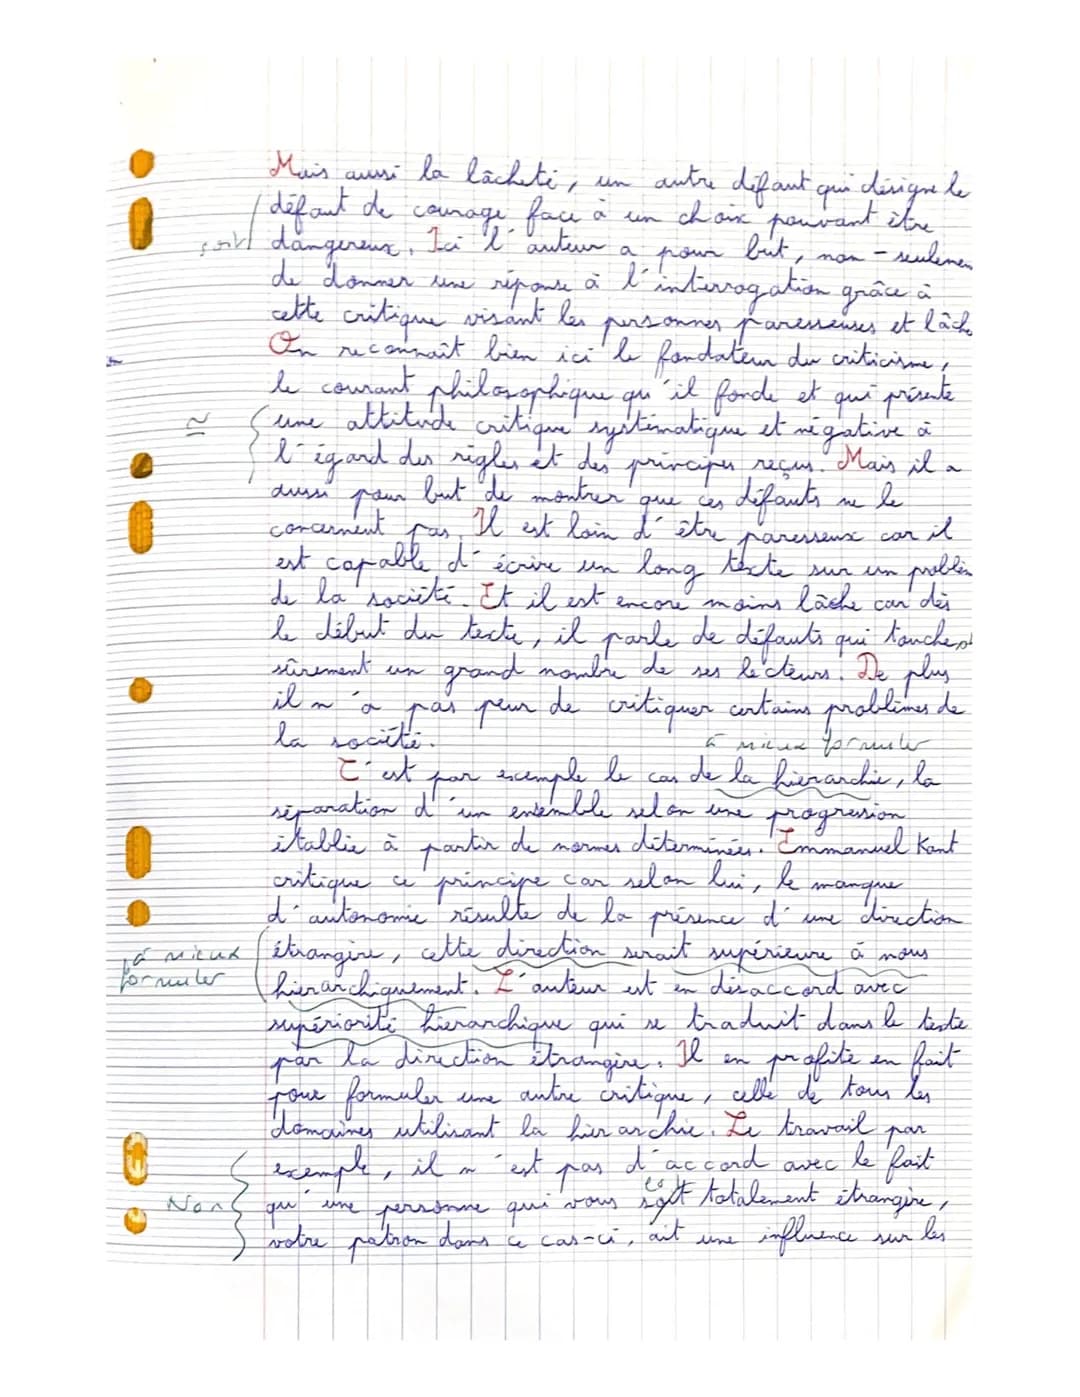 Mais aussi la lâcheté, un autre défaut qui désigne le
défaut de courage face à un choix pouvant être
dangereux. Ici l'auteur a pour but, non-seulemen
de donner une réponse à l'interrogation grâce à
cette critique visant les personnes paresseuses et lâch
On reconnaît bien ici le fondateur du criticisme,
le courant philosophique qu'il fonde et qui présente
≃
une attitude critique systématique et négative à
l'égard des règles et des principes reçus. Mais il a
aussi pour but de montrer que ces défauts ne le
concernent pas. Il est loin d'être paresseux car il
est capable d'écrire un long texte sur un problèm
de la société. Et il est encore moins lâche car dès
le début du texte, il parle de défauts qui touchent
sûrement un grand nombre de ses lecteurs. De plus
il n'a pas peur de critiquer certains problèmes de
la société.
à mieux formuler
C'est par exemple le cas de la hiérarchie, la
séparation d'un ensemble selon une progression
établie à partir de normes déterminées. Emmanuel Kant
critique ce principe car selon lui, le manque
d'autonomie résulte de la présence d'une direction
à mieux
formuler
étrangère, cette direction serait supérieure à nous
hierarchiquement. L'auteur est en désaccord avec
supériorité hierarchique qui se traduit dans le texte
par la direction étrangère. Il en profite en fait
pour formuler une autre critique, celle de tous les
domaines utilisant la hierarchie. Le travail par
exemple, il n'est pas d'accord avec le fait
Non
es
qu'une personne qui vous soit totalement étrangère,
votre patron dans ce cas-ci, ait une influence sur les